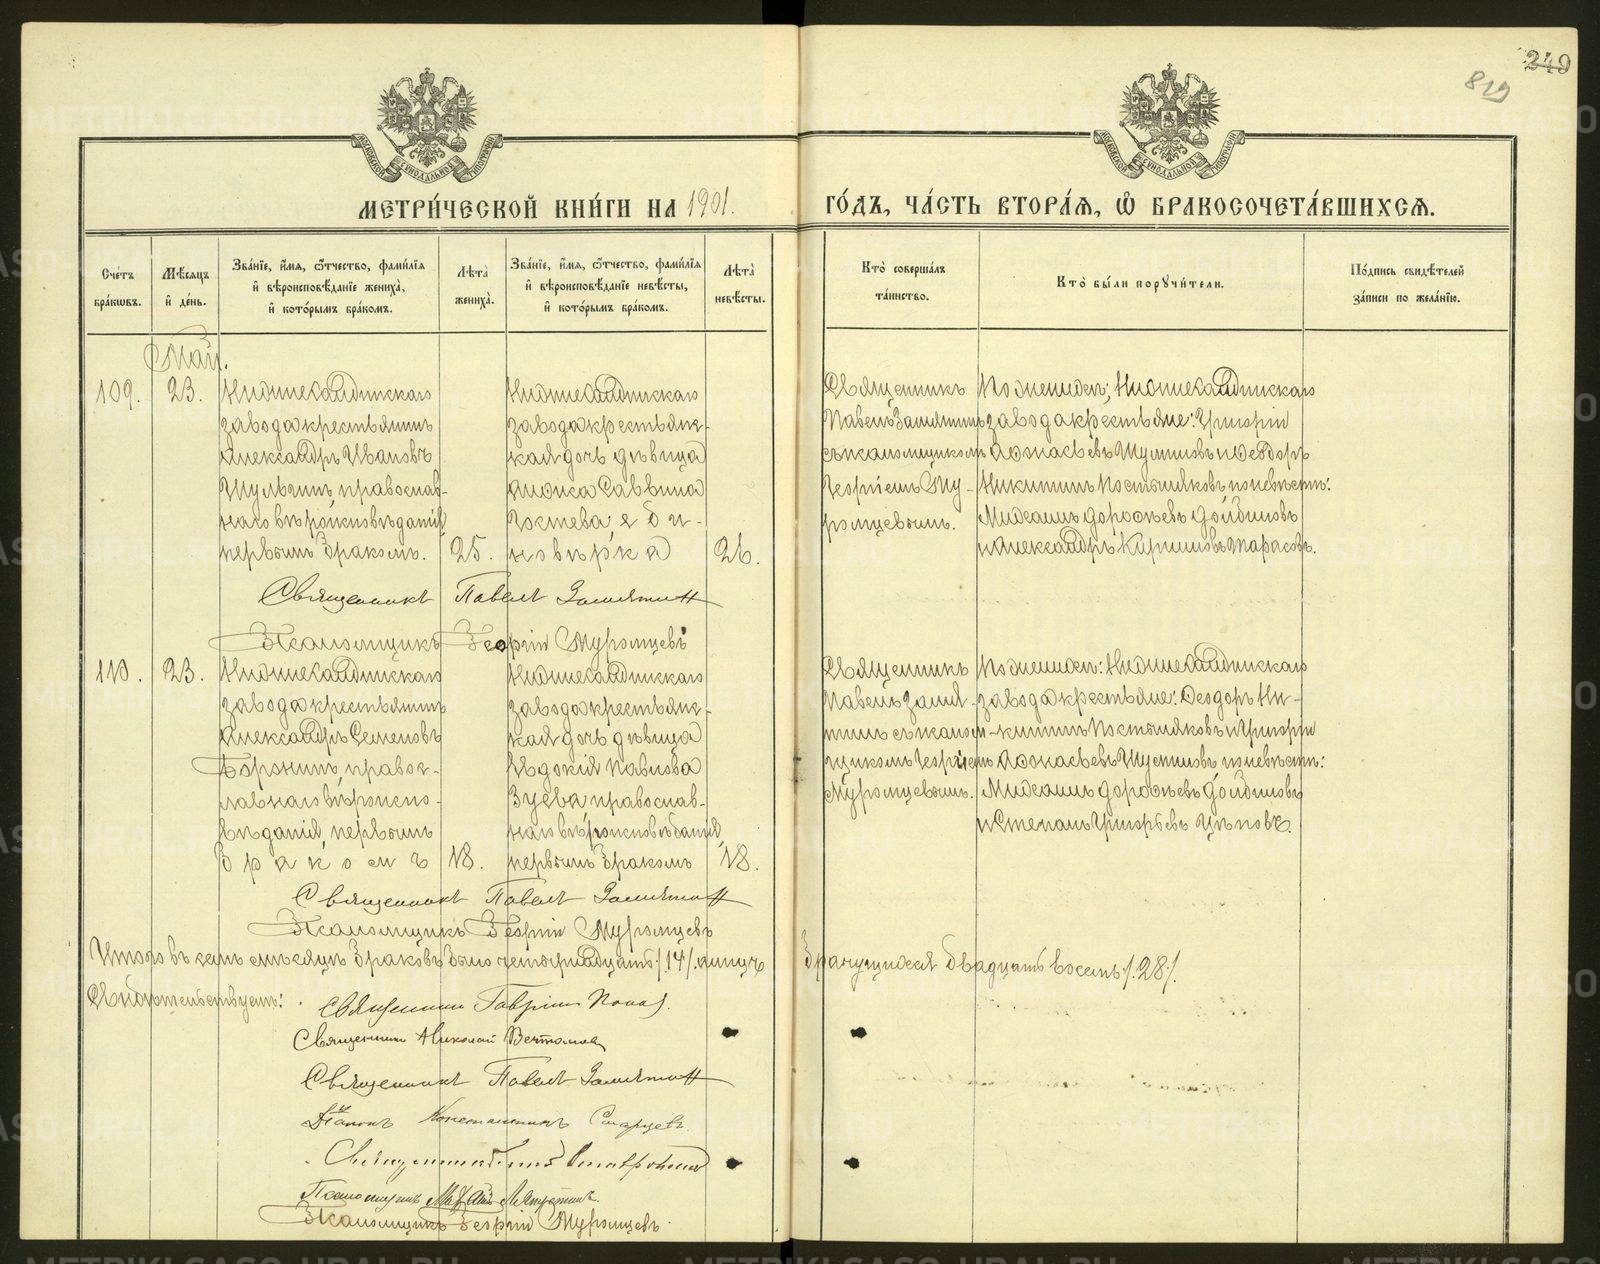 240
819
МЕТРИ́ЧЕСКОЙ КНИ́ГИ НА 1901.
ГО́ДЪ, ЧА́СТЬ ВТОРА́Ѧ, Ѡ҆ БРАКОСОЧЕТА́ВШИХСѦ.
Сче́тъ бра́кѡвъ.
Мѣ́сѧцъ и҆ де́нь.
Зва́нїе, и҆́мѧ, ѻ҆́тчество, фами́лїѧ и҆ вѣроисповѣ́данїе жениха̀, и҆ кото́рымъ бра́комъ.
Лѣта̀ жениха̀.
Зва́нїе, и҆́мѧ, ѻ҆́тчество, фами́лїѧ и҆ вѣроисповѣ́данїе невѣ́сты, и҆ кото́рымъ бра́комъ.
Лѣта̀ невѣ́сты.
Кто̀ соверша́лъ та́инство.
Кто̀ бы́ли порꙋчи́тели.
По́дпись свидѣ́телей за́писи по жела́нїю.
Май.
109.
23.
Нижнесалдинскаго
завода крестьянинъ
Александръ Ивановъ
Шульгинъ, православ-
наго вѣроисповѣданія,
первымъ бракомъ.
25.
Нижнесалдинскаго
завода крестьянс-
кая дочь дѣвица
Саввина
Гостева, еди-
новѣрка
26.
Священникъ
Павелъ Замятинъ
съ псаломщикомъ
Георгіемъ Му-
ромцевымъ.
По женихѣ: Нижнесалдинскаго
завода крестьяне: Григорій
Аѳонасьевъ и Ѳеодоръ
Никитинъ Постыляковъ, по невѣстѣ:
Михаилъ Дороѳеевъ
и Александръ Кириловъ Тарасовъ.
Священникъ Павелъ Замятинъ
Псаломщикъ Георгій Муромцевъ
110.
23.
Нижнесалдинскаго
завода крестьянинъ
Александръ Семеновъ
Боронинъ, правос-
лавнаго вѣроиспо-
вѣданія, первымъ
бракомъ
18.
Нижнесалдинскаго
завода крестьянс-
кая дочь дѣвица
Евдокія Павлова
Зуева православ-
наго вѣроисповѣданія,
первымъ бракомъ
18.
Священникъ
Павелъ Замя-
тинъ съ псалом-
щикомъ Георгіемъ
Муромцевымъ.
По женихѣ: Нижнесалдинскаго
завода крестьяне: Ѳеодоръ Ни-
китинъ Постыляковъ и Григорій
Аѳонасьевъ по невѣстѣ:
Михаилъ Дороѳеевъ
и Степанъ Григорьевъ
Священникъ Павелъ Замятинъ
Псаломщикъ Георгій Муромцевъ
Итого въ семъ мѣсяцѣ браковъ было четырнадцать /14/. лицъ
брачущихся двадцать восемь /28/.
Свидѣтельствуемъ:
Священникъ Гавріилъ Попов
Священникъ Николай
Священникъ Павелъ Замятинъ
Діаконъ Константинъ Старцевъ.
Псаломщикъ
Псаломщикъ Георгій Муромцевъ.